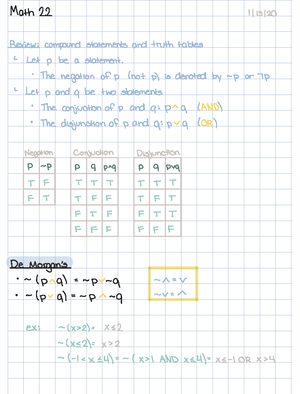 Math 22
1/15/20
Review: compound statements and truth tables
Let p be a statement.
• The negation of p (not p) is denoted by ~p or ¬p
Let p and q be two statements
• The conjuction of p and q: p^q (AND)
• The disjunction of p and q: pvq (OR)
Negation Conjuction Disjunction
p ~p p q p^q p q pvq
T F T T T T T T
F T T F F T F T
F T F F T T
F F F F F F
De Morgan's
• ~(p^q) = ~pv~q ~^=v
• ~(pvq) = ~p^~q ~v=^
ex: ~(x>2)= x≤2
~(x≤2)= x>2
~(-1<x≤4)= ~(x>1 AND x≤4)= x≤-1 OR x>4